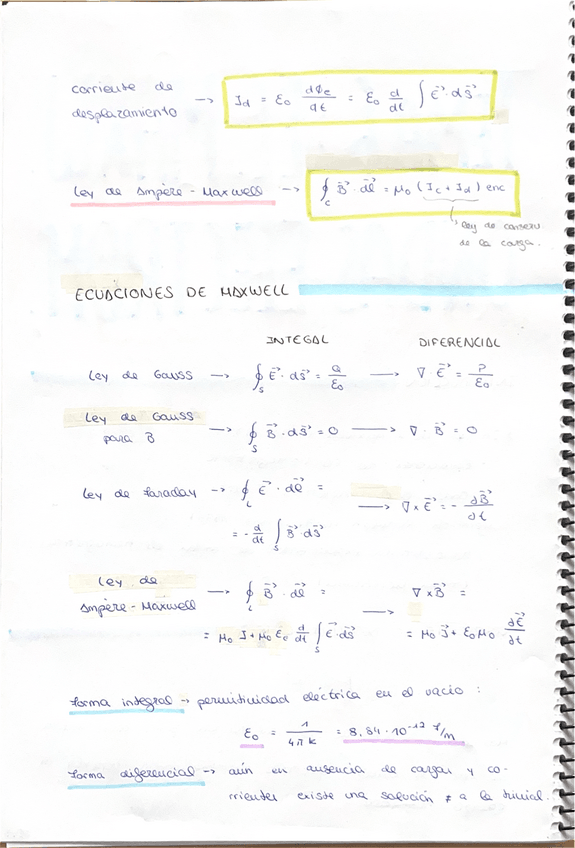 corriente de
desplazamiento → I_d = ε₀ dΦₑ/dt = ε₀ d/dt ∫ E⃗ · dS⃗
Ley de Ampère-Maxwell → ∮_C B⃗ · dl⃗ = μ₀ (I_c + I_d) enc
ley de conserv
de la carga.
ECUACIONES DE MAXWELL
INTEGAL DIFERENCIAL
Ley de Gauss → ∮_S E⃗ · dS⃗ = Q/ε₀ → ∇ E⃗ = ρ/ε₀
Ley de Gauss
para B → ∮_S B⃗ · dS⃗ = 0 → ∇ · B⃗ = 0
Ley de Faraday → ∮_L E⃗ · dl⃗ =
= - d/dt ∫_S B⃗ · dS⃗ → ∇ x E⃗ = - ∂B⃗/∂t
Ley de
Ampère-Maxwell → ∮_L B⃗ · dl⃗ =
= μ₀ I + μ₀ ε₀ d/dt ∫_S E⃗ · dS⃗ → ∇ x B⃗ =
= μ₀ J⃗ + ε₀ μ₀ ∂E⃗/∂t
Forma integral → permitividad eléctrica en el vacío :
ε₀ = 1/4πk = 8,84 · 10⁻¹² F/m
Forma diferencial → aún en ausencia de cargas y co-
rrientes existe una solución ≠ a la trivial.